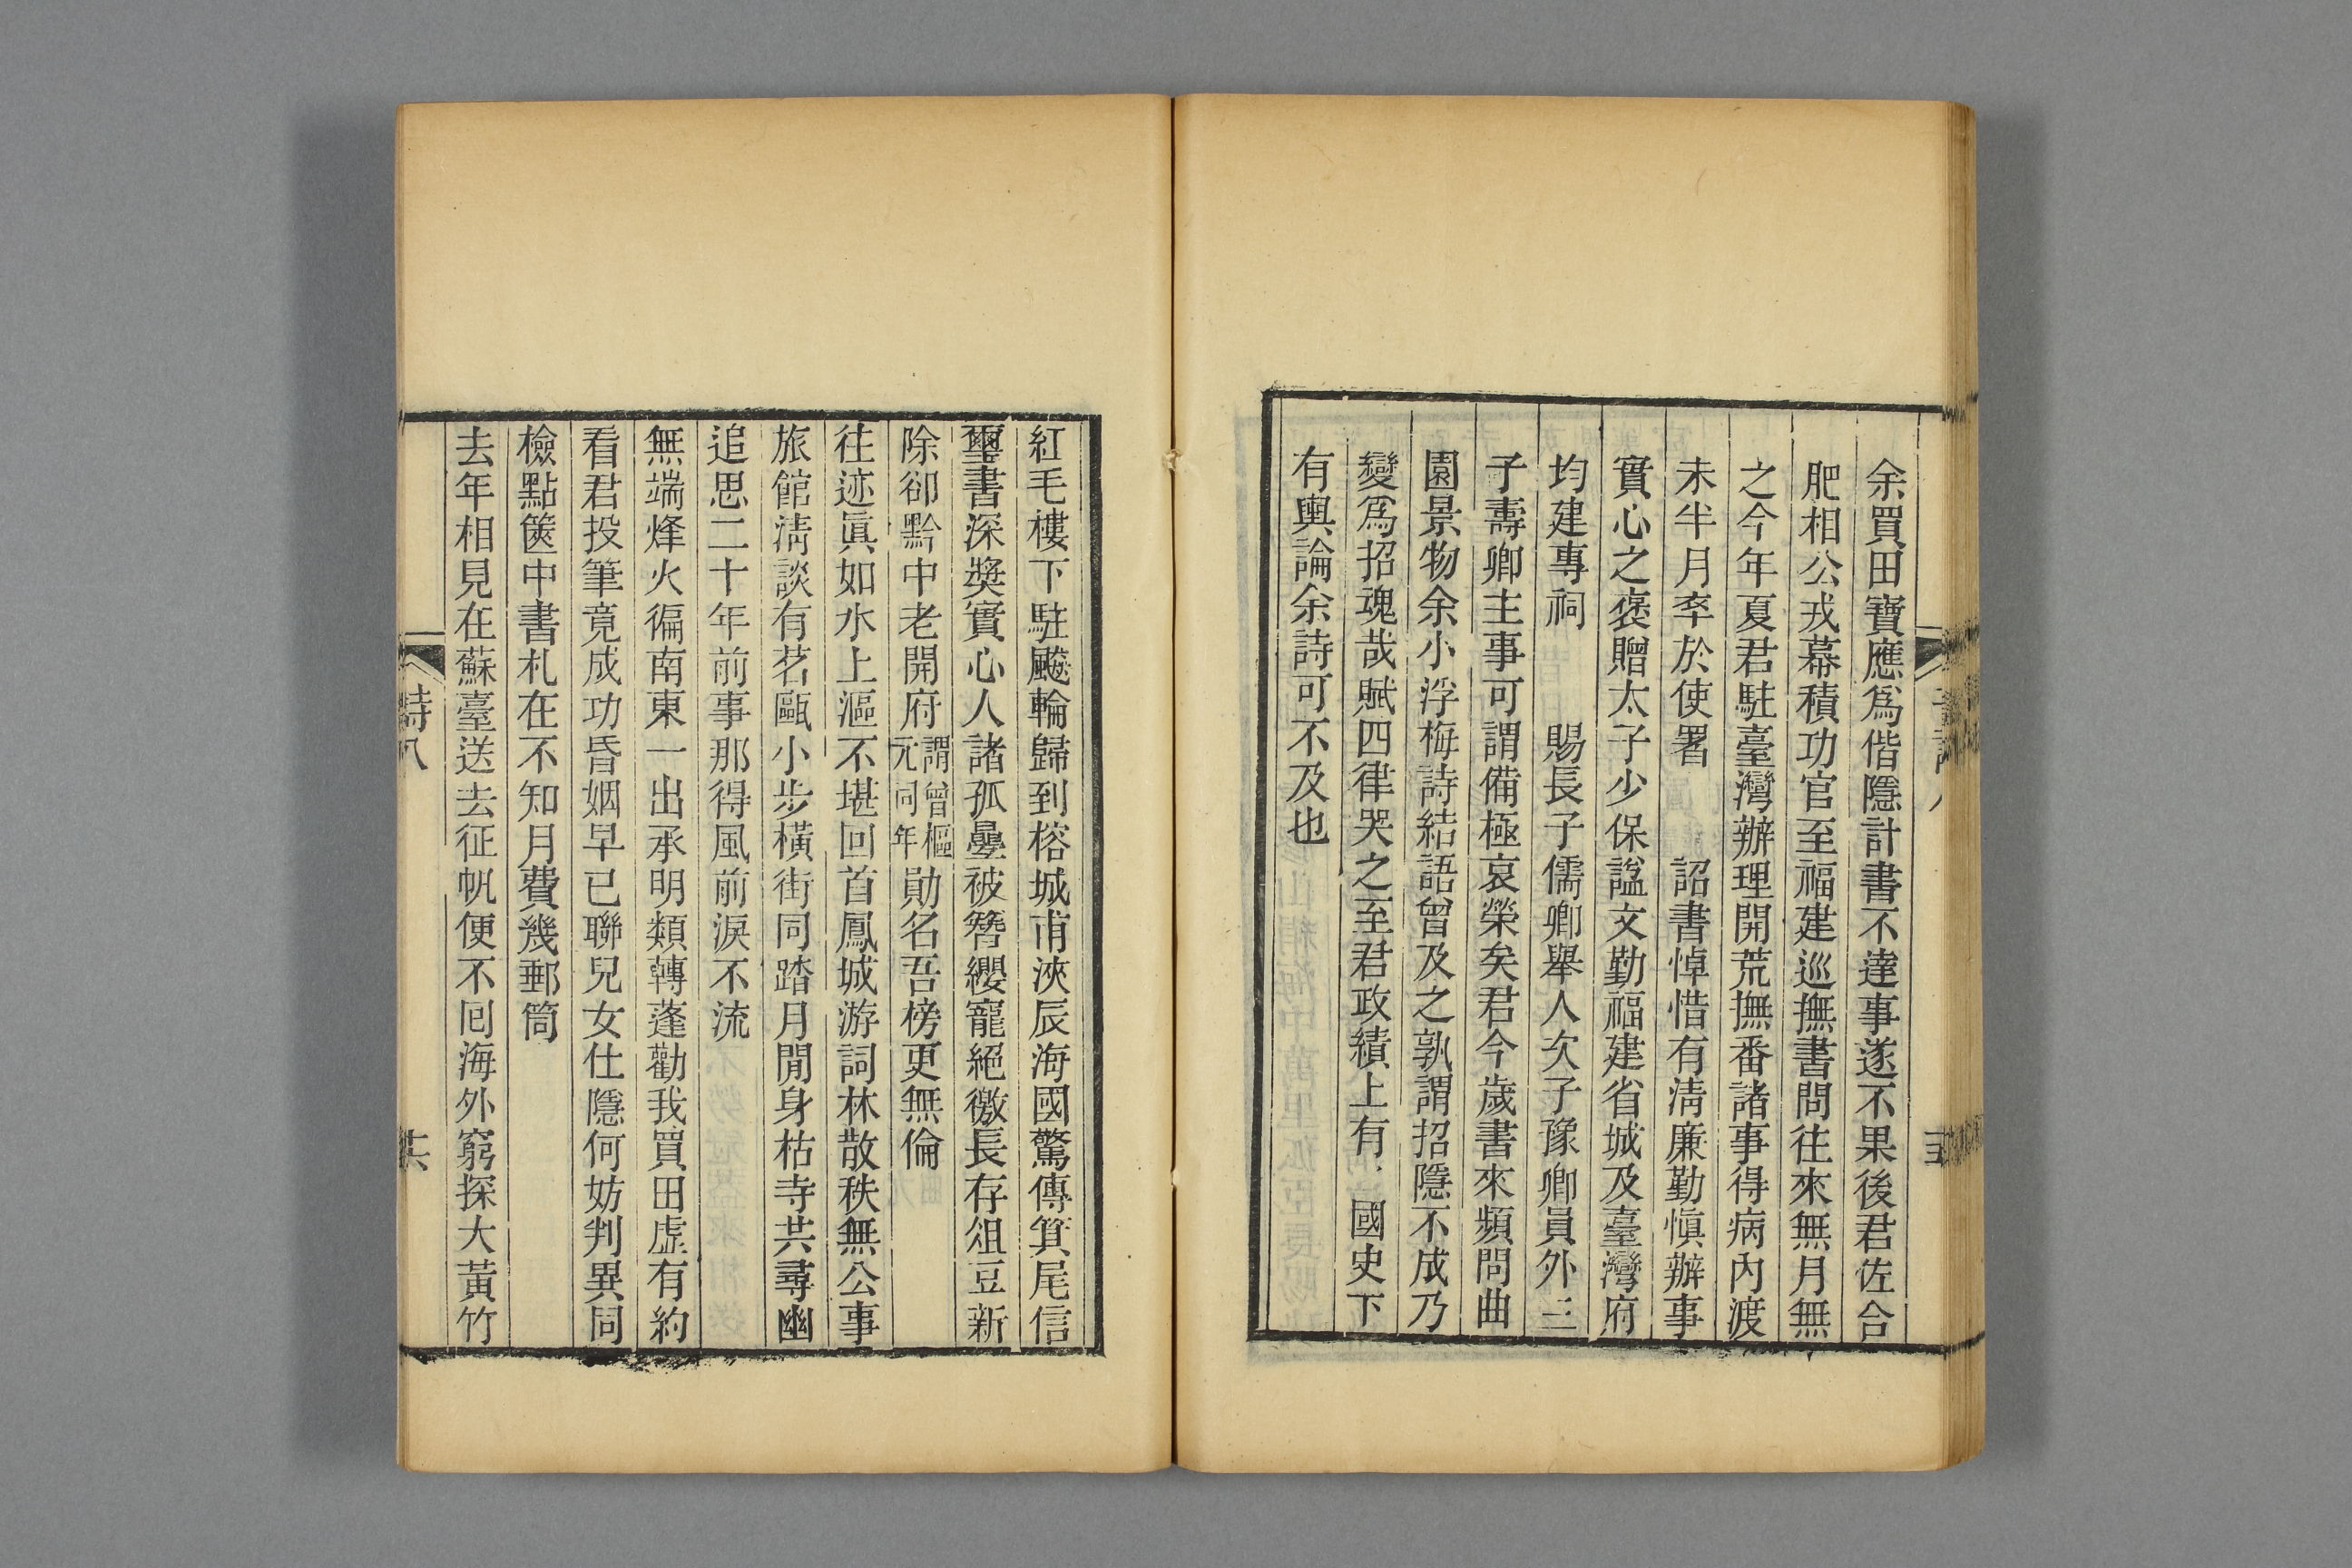 余買田寶應爲偕隱計書不達事遂不果後君佐合
肥相公戎幕積功官至福建巡撫書問往來無月無
之今年夏君駐臺灣辦理開荒撫番諸事得病內渡
未半月卒於使署　詔書悼惜有淸廉勤愼辦事
實心之褒贈太子少保諡文勤福建省城及臺灣府
均建專祠　賜長子儒卿舉人次子豫卿員外三
子壽卿主事可謂備極哀榮矣君今歲書來頻問曲
園景物余小浮梅詩結語曾及之孰謂招隱不成乃
變爲招魂哉賦四律哭之至君政績上有　國史下
有輿論余詩可不及也
紅毛樓下駐飈輪歸到榕城甫浹辰海國驚傳箕尾信
璽書深獎實心人諸孤曡被簪纓寵絕徼長存俎豆新
除卻黔中老開府謂曾樞元同年勛名吾榜更無倫
往迹眞如水上漚不堪回首鳳城游詞林散秩無公事
旅館淸談有茗甌小步橫街同踏月閒身枯寺共尋幽
追思二十年前事那得風前淚不流
無端烽火徧南東一出承明類轉蓬勸我買田虛有約
看君投筆竟成功昏姻早已聯兒女仕隱何妨判異同
檢點篋中書札在不知月費幾郵筒
去年相見在蘇臺送去征帆便不囘海外窮探大黃竹
詩八
共